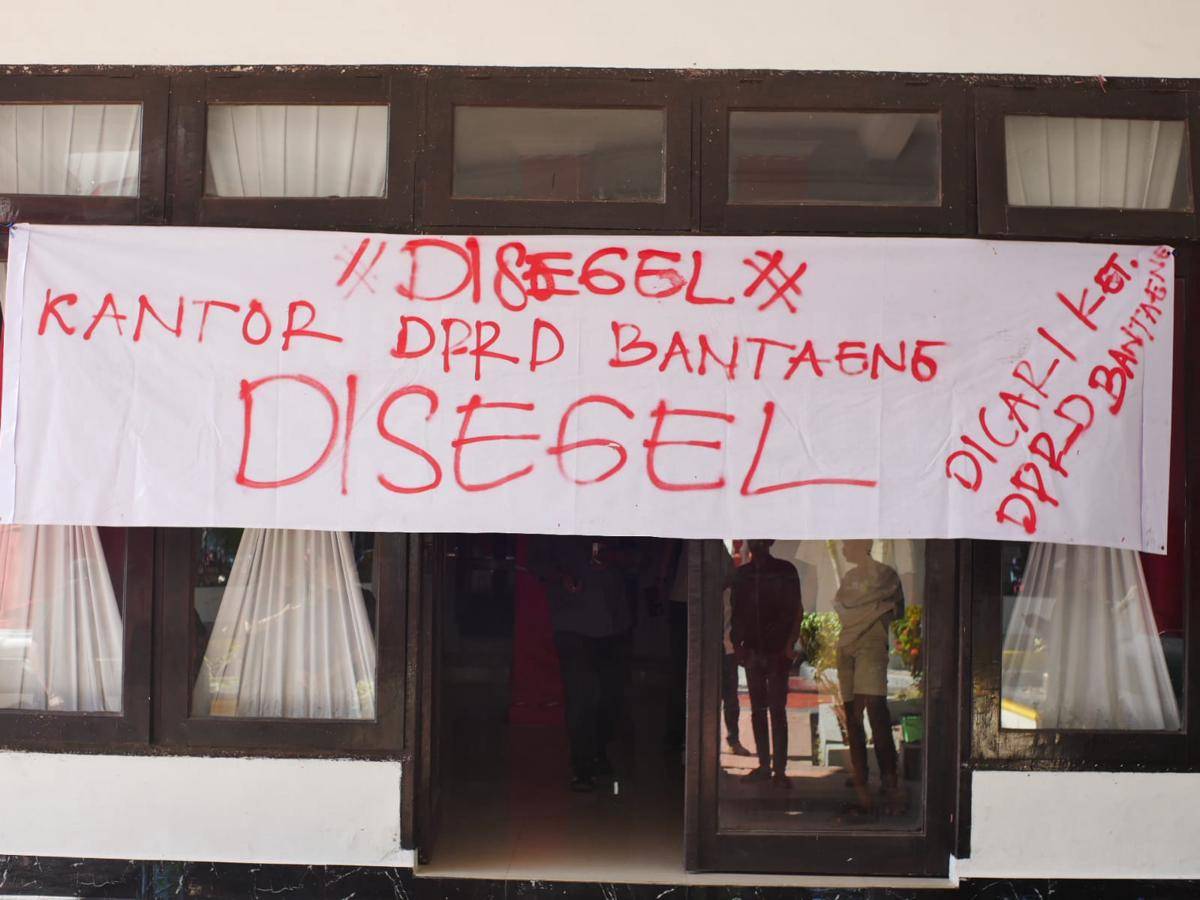 // DISEGEL //
KANTOR DPRD BANTAENG
DISEGEL
DICARI KET.
DPRD BANTAENG